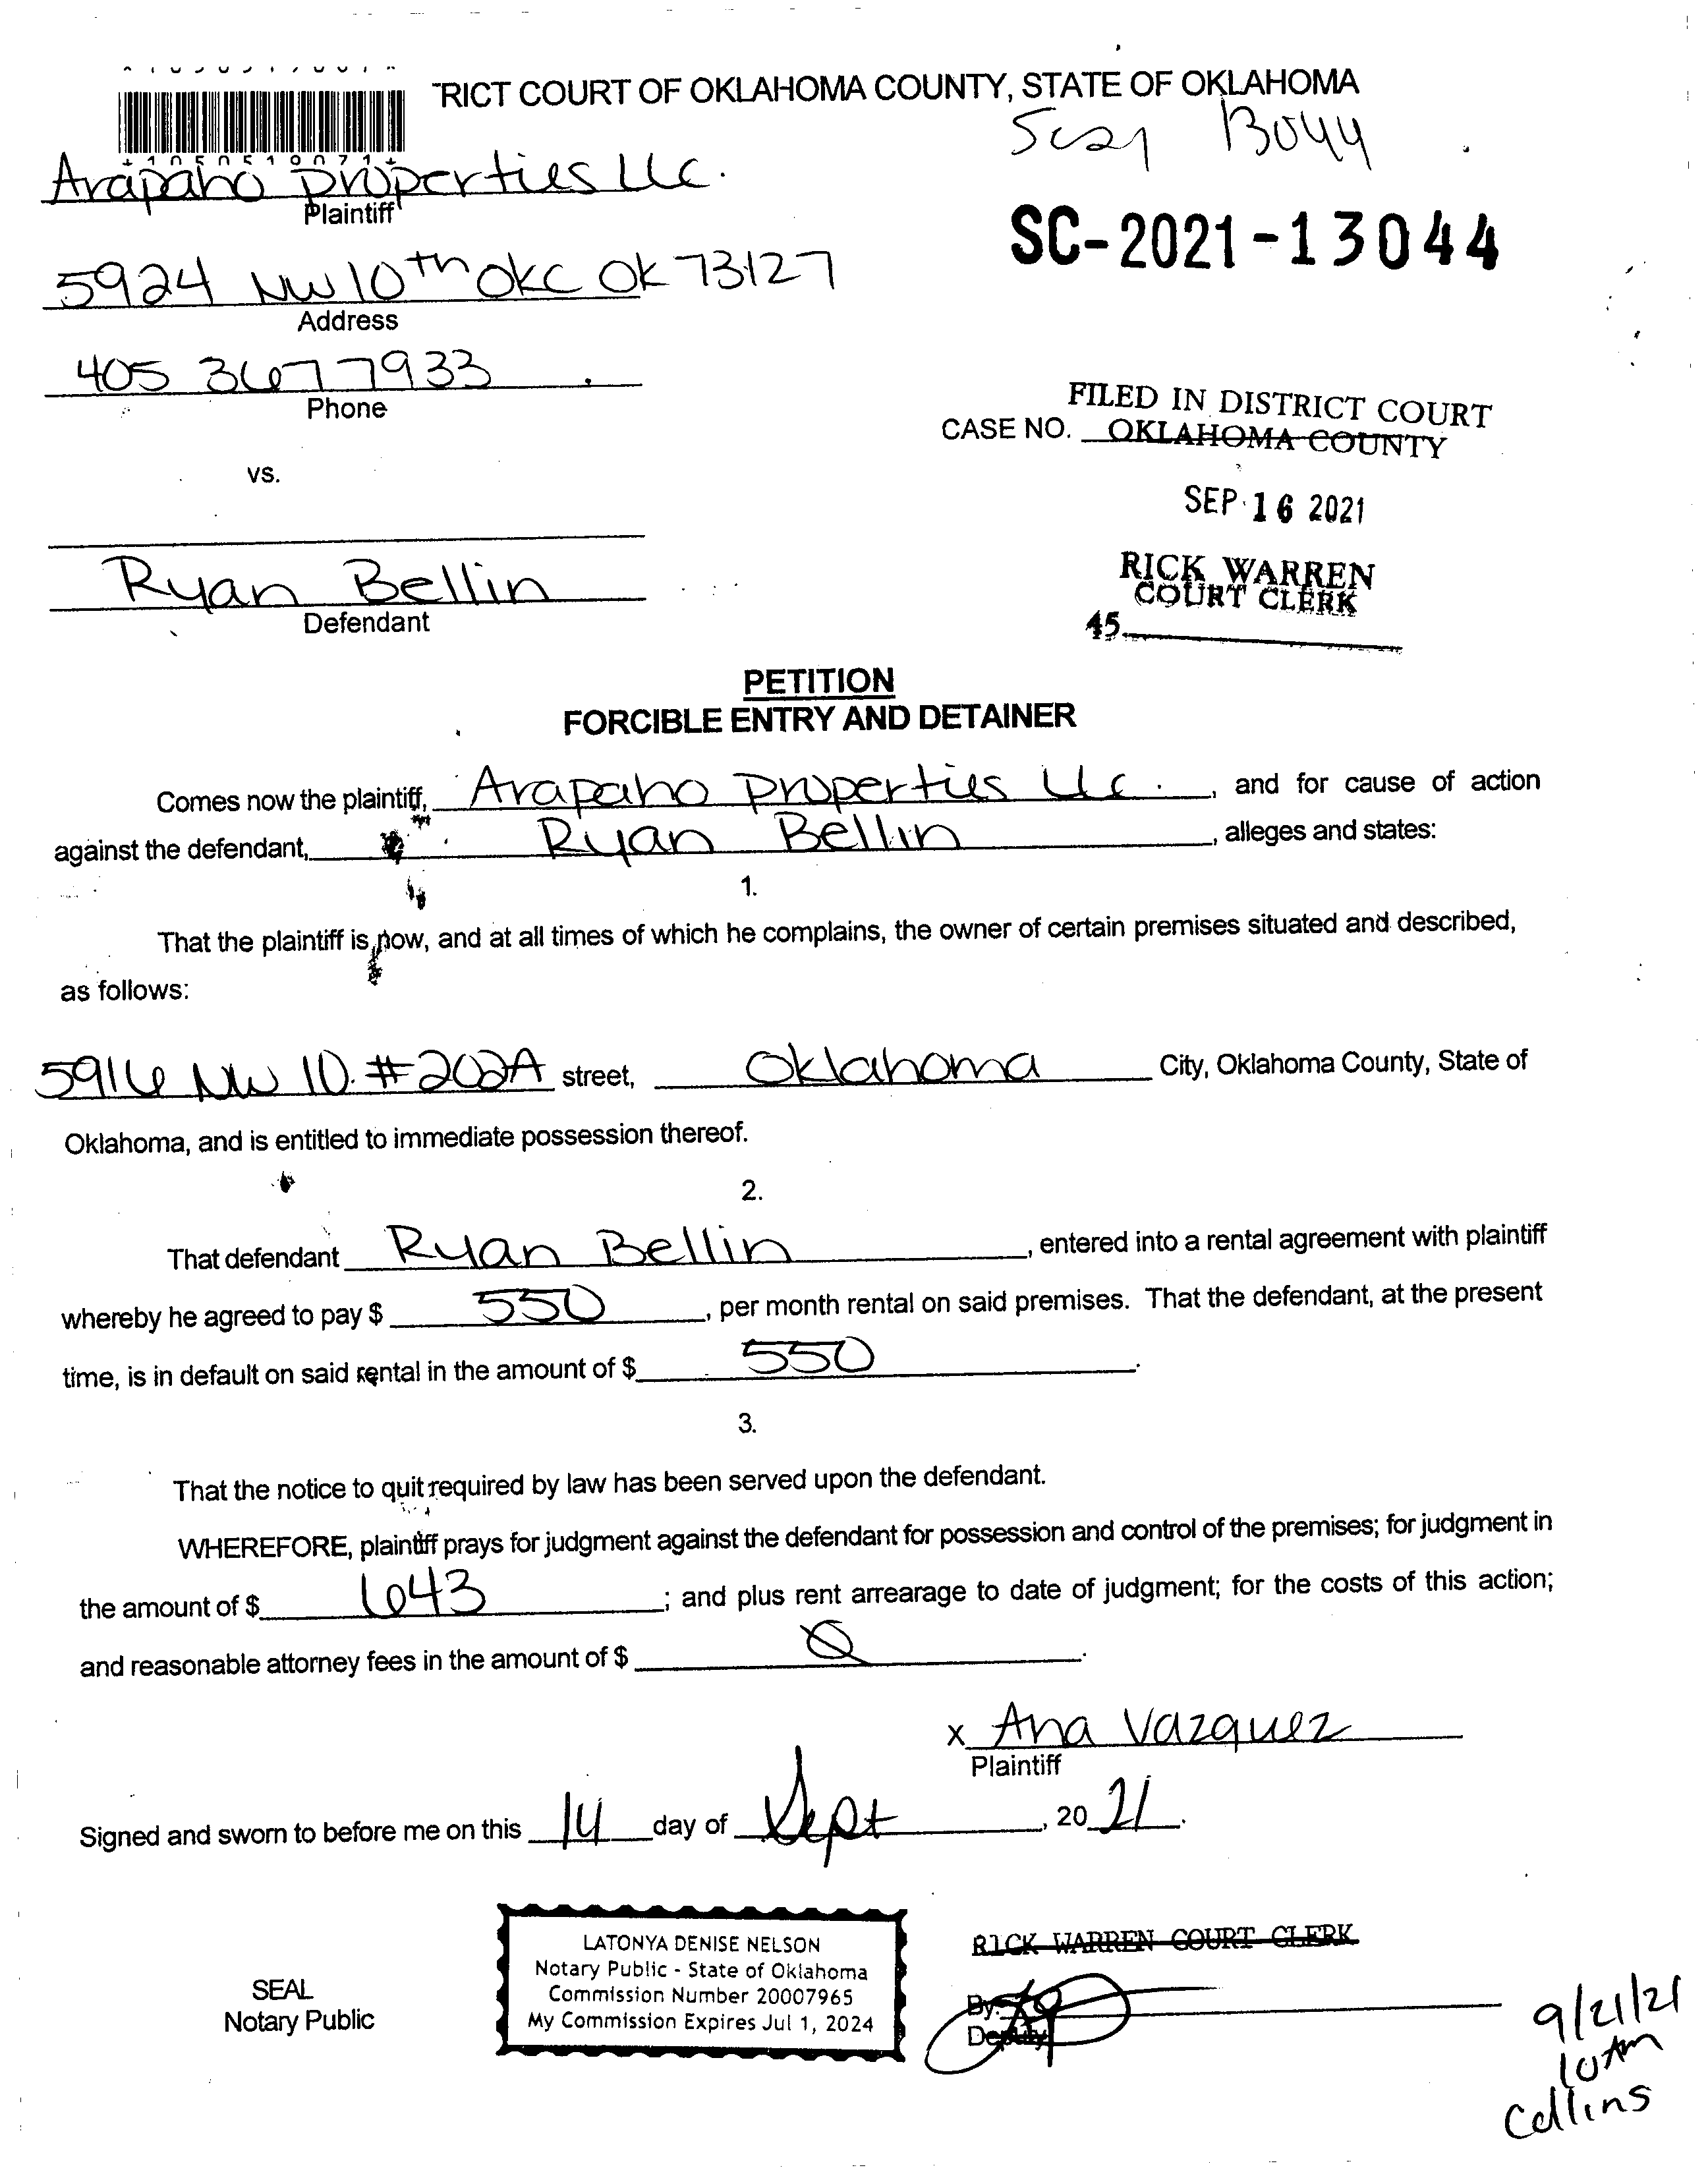 RICT COURT OF OKLAHOMA COUNTY, STATE OF OKLAHOMA
Sc21 13044
*1050519071*
Arapaho Properties LLC.
Plaintiff
SC-2021-13044
5924 NW 10th OKC OK 73127
Address
405 367 7933
Phone
FILED IN DISTRICT COURT
CASE NO. OKLAHOMA COUNTY
vs.
SEP 16 2021
Ryan Bellin
Defendant
RICK WARREN
COURT CLERK
45
PETITION
FORCIBLE ENTRY AND DETAINER
Comes now the plaintiff, Arapaho Properties LLC. , and for cause of action
against the defendant, Ryan Bellin , alleges and states:
1.
That the plaintiff is now, and at all times of which he complains, the owner of certain premises situated and described,
as follows:
5916 NW 10. #202A street, Oklahoma City, Oklahoma County, State of
Oklahoma, and is entitled to immediate possession thereof.
2.
That defendant Ryan Bellin , entered into a rental agreement with plaintiff
whereby he agreed to pay $ 550 , per month rental on said premises. That the defendant, at the present
time, is in default on said rental in the amount of $ 550 .
3.
That the notice to quit required by law has been served upon the defendant.
WHEREFORE, plaintiff prays for judgment against the defendant for possession and control of the premises; for judgment in
the amount of $ 643 ; and plus rent arrearage to date of judgment; for the costs of this action;
and reasonable attorney fees in the amount of $ Ø .
X Ana Vazquez
Plaintiff
Signed and sworn to before me on this 14 day of Sept , 20 21 .
SEAL
Notary Public
LATONYA DENISE NELSON
Notary Public - State of Oklahoma
Commission Number 20007965
My Commission Expires Jul 1, 2024
RICK WARREN COURT CLERK
By:
Deputy
9/21/21
10 Am
Collins